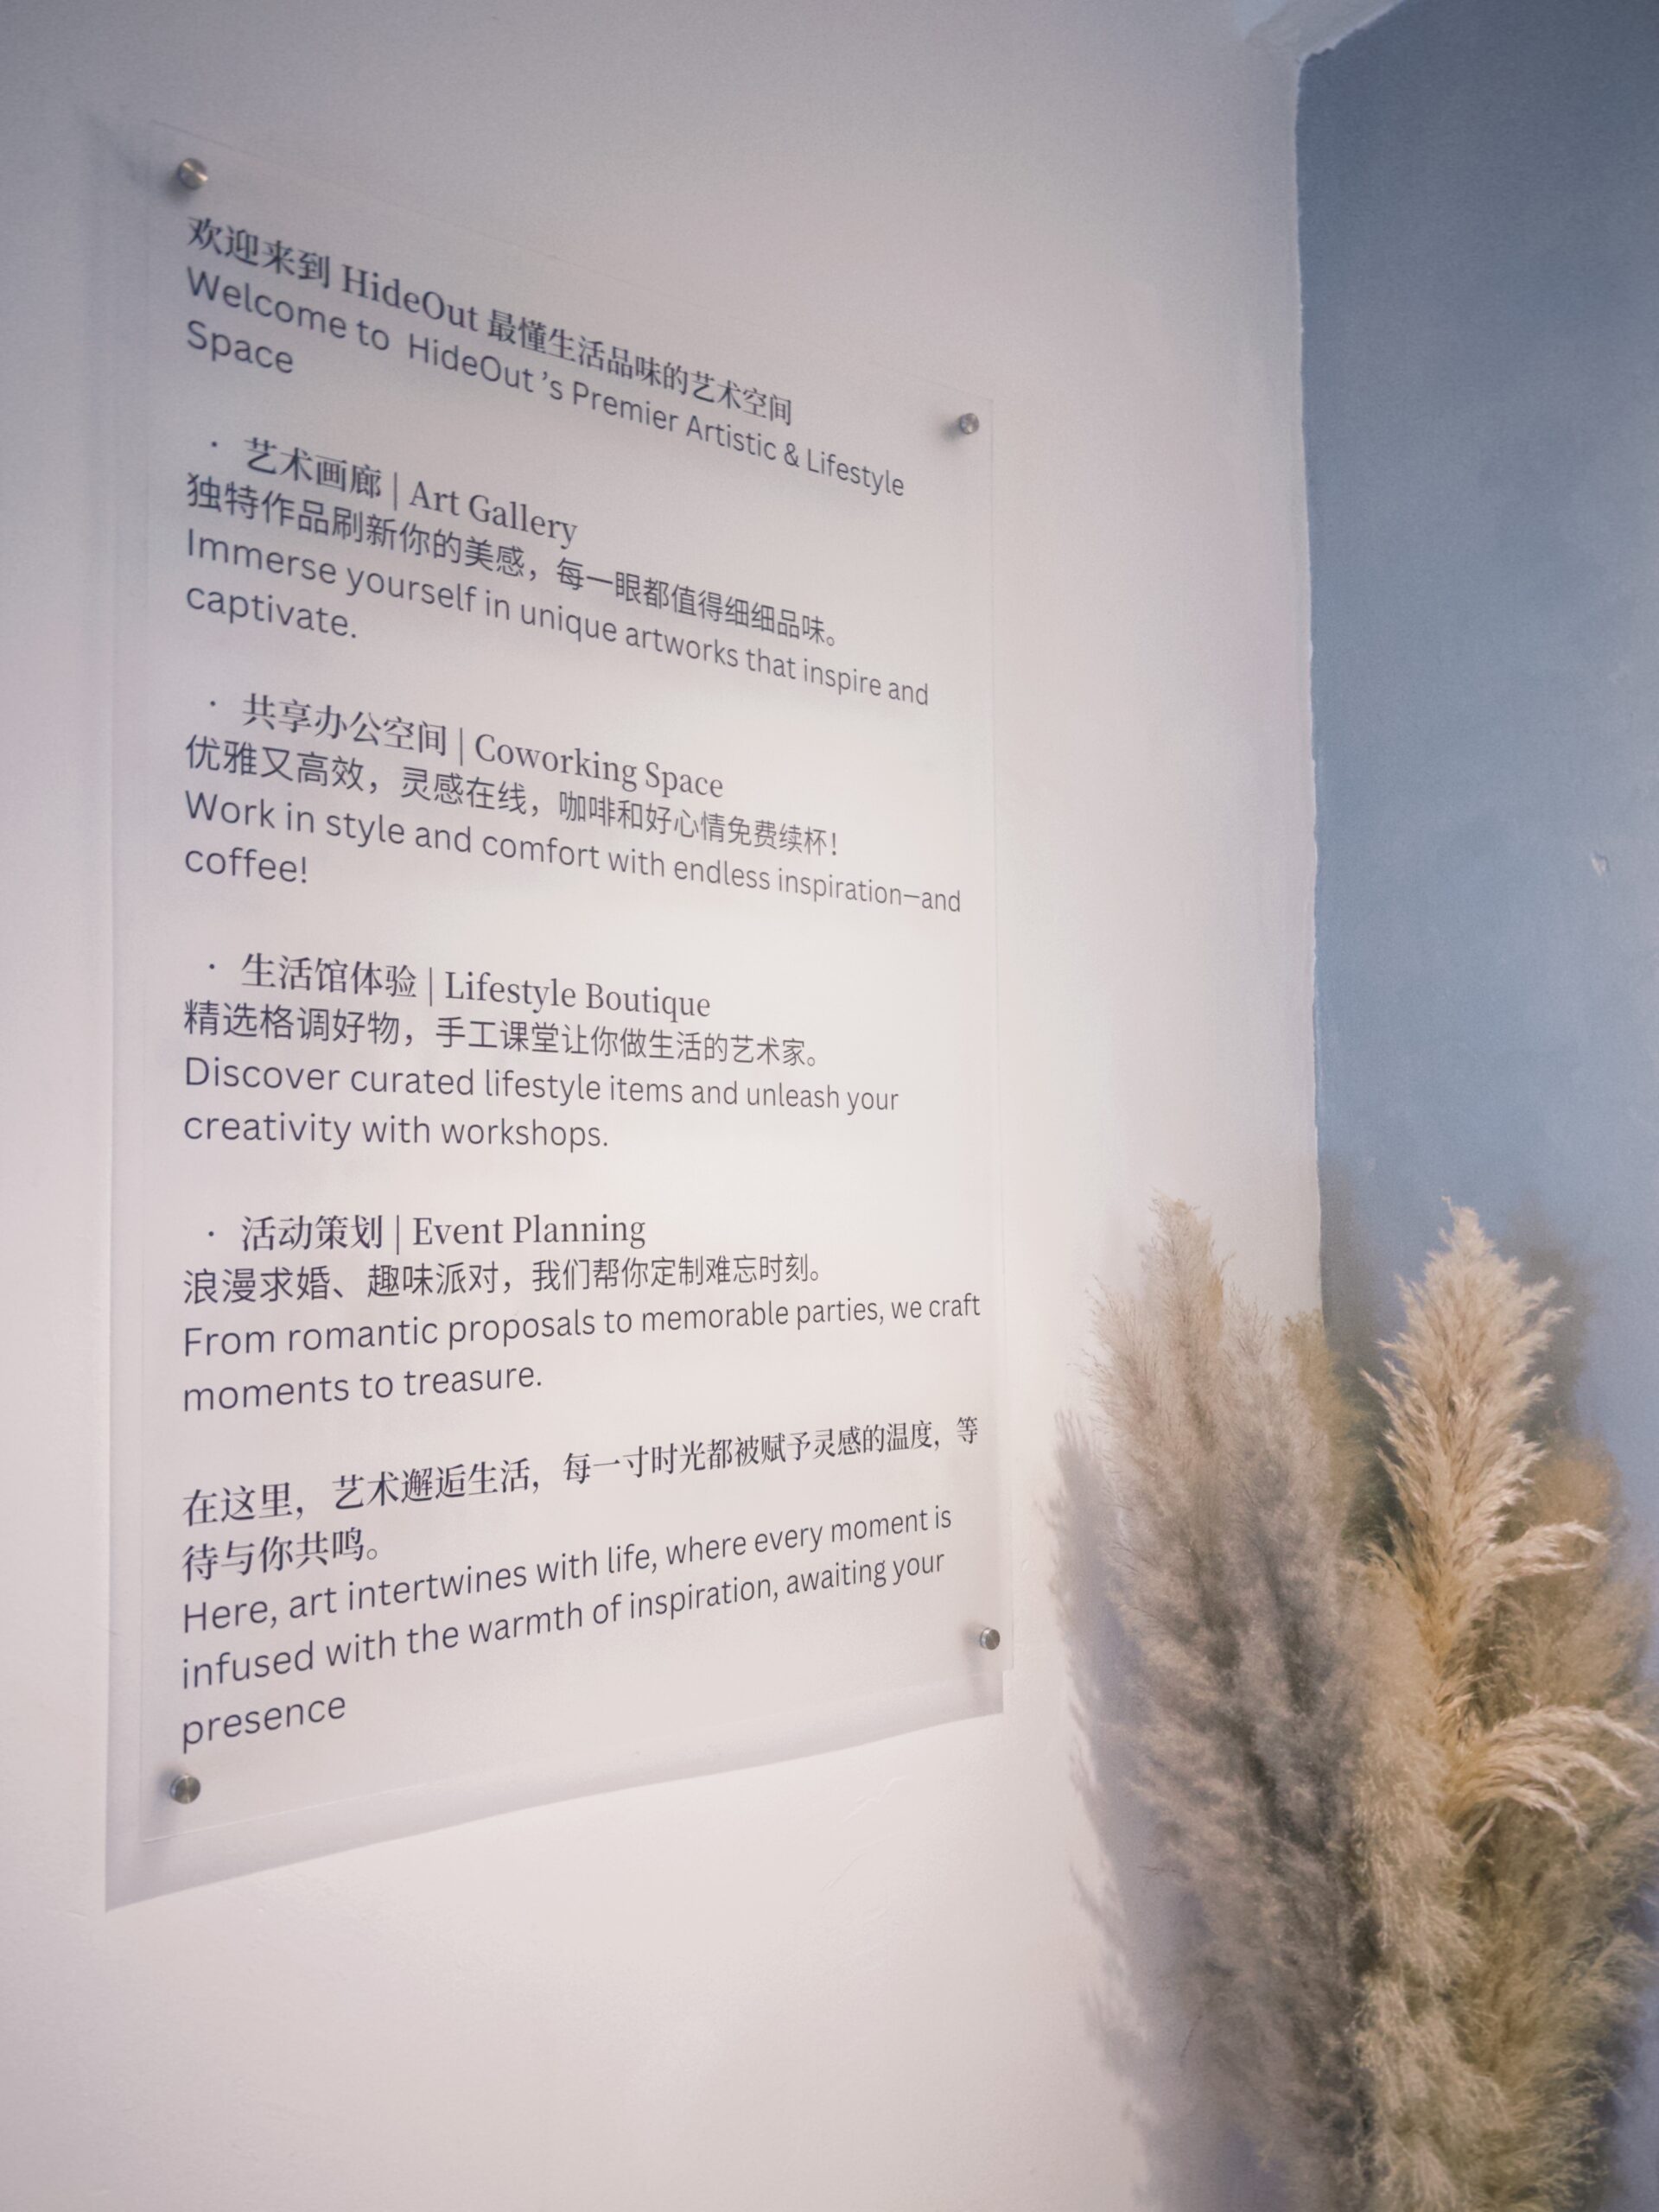 欢迎来到 HideOut 最懂生活品味的艺术空间
Welcome to HideOut 's Premier Artistic & Lifestyle
Space
· 艺术画廊 | Art Gallery
独特作品刷新你的美感，每一眼都值得细细品味。
Immerse yourself in unique artworks that inspire and
captivate.
· 共享办公空间 | Coworking Space
优雅又高效，灵感在线，咖啡和好心情免费续杯！
Work in style and comfort with endless inspiration—and
coffee!
· 生活馆体验 | Lifestyle Boutique
精选格调好物，手工课堂让你做生活的艺术家。
Discover curated lifestyle items and unleash your
creativity with workshops.
· 活动策划 | Event Planning
浪漫求婚、趣味派对，我们帮你定制难忘时刻。
From romantic proposals to memorable parties, we craft
moments to treasure.
在这里，艺术邂逅生活，每一寸时光都被赋予灵感的温度，等
待与你共鸣。
Here, art intertwines with life, where every moment is
infused with the warmth of inspiration, awaiting your
presence